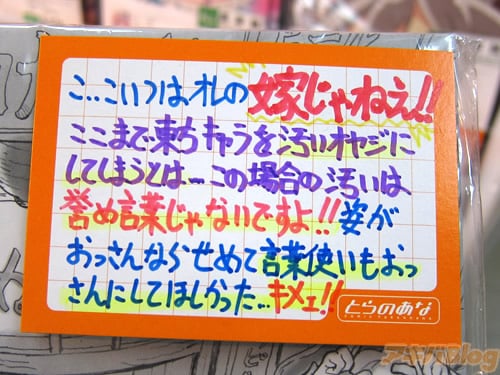 こ…こいつは、オレの嫁じゃねぇ!!
ここまで東方キャラを汚いオヤジに
してしまうとは…この場合の汚いは、
誉め言葉じゃないですよ!!姿が
おっさんならせめて言葉使いもおっ
さんにしてほしかった…キメェ!!
とらのあな
COMIC TORANOANA
アキバBlog